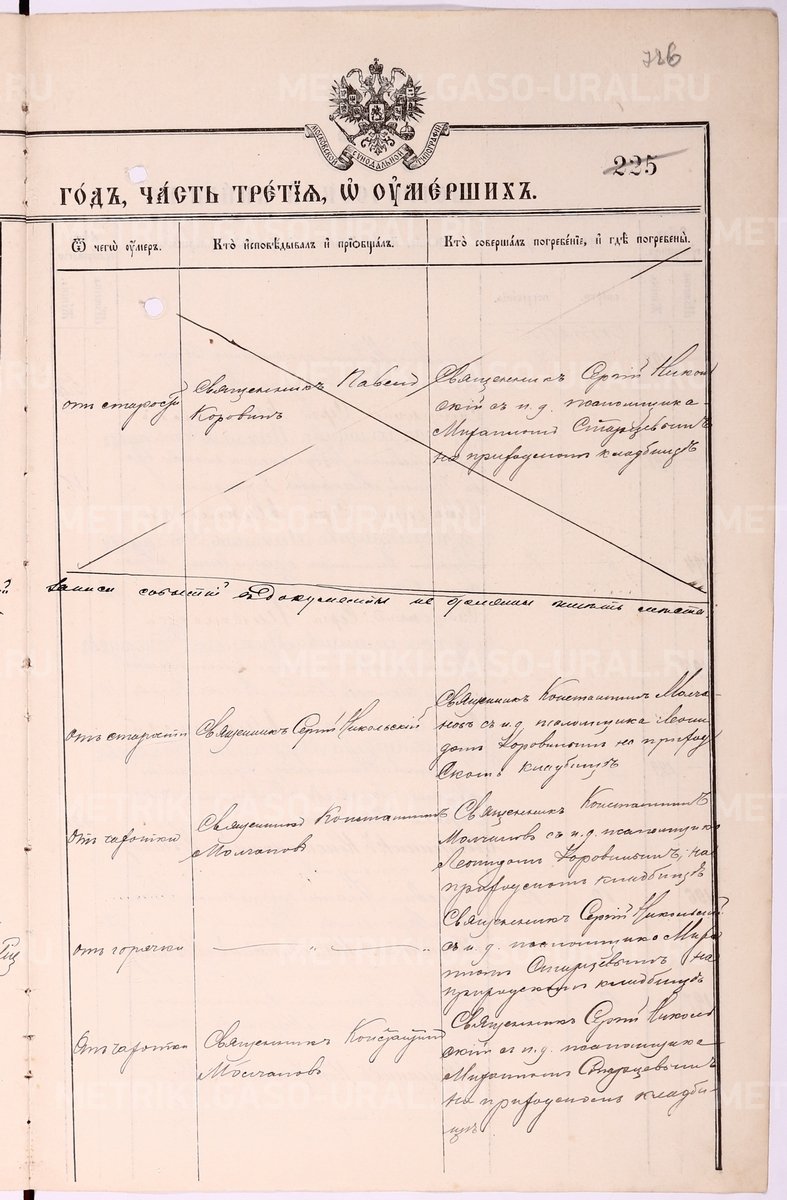 726
МОСКОВСКОЙ СУНОДАЛЬНОЙ ТИПОГРАФІИ
225
ГОДЪ, ЧАСТЬ ТРЕТІЯ, Ѡ ОУМЕРШИХЪ.
Ѿ чегѡ оумеръ.
Кто исповѣдывалъ и пріобщалъ.
Кто совершалъ погребеніе, и гдѣ погребены.
отъ старости
Священникъ
Коровинъ
Священникъ Сергій Николь
скій съ и. д. псаломщика
Старцевымъ
на приходскомъ кладбищѣ
Записи событій
отъ старости
Священникъ Сергій Никольскій
Священникъ Константинъ Молча
новъ съ и. д. псаломщика Леони
домъ Коровинымъ на приход
скомъ кладбищѣ
отъ чахотки
Священникъ Константинъ
Молчановъ
Священникъ Константинъ
Молчановъ съ и. д. псаломщика
Леонидомъ Коровинымъ, на
приходскомъ кладбищѣ
отъ горячки
Священникъ Сергій Никольскій
съ и. д. псаломщика
Старцевымъ на
приходскомъ кладбищѣ
отъ чахотки
Священникъ Константинъ
Молчановъ
Священникъ Сергій Николь
скій съ и. д. псаломщика
Старцевымъ
на приходскомъ кладби-
щѣ
METRIKI.GASO-URAL.RU